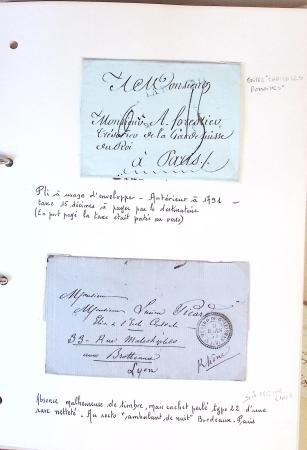 A Monsieur
Monsieur A. forestier
Trésorier de la Garde Suisse
du Roi
à Paris /.
Pli à usage d'enveloppe - Antérieur à 1791 -
taxe 15 décimes à payer par le destinataire
(En port payé la taxe était portée au verso)
Monsieur
Monsieur Picard
33 - Rue Malesherbes
aux Brotteaux
Lyon
Rhône
Absence malheureuse de timbre, mais cachet perlé type 22 d'une
rare netteté. Au recto "ambulant de nuit" Bordeaux-Paris